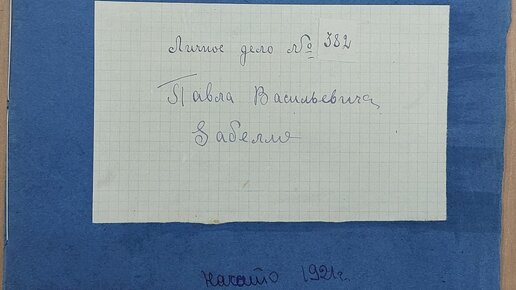 Личное дело № 382
Павла Васильевича
Забелля
начато 1921 г.